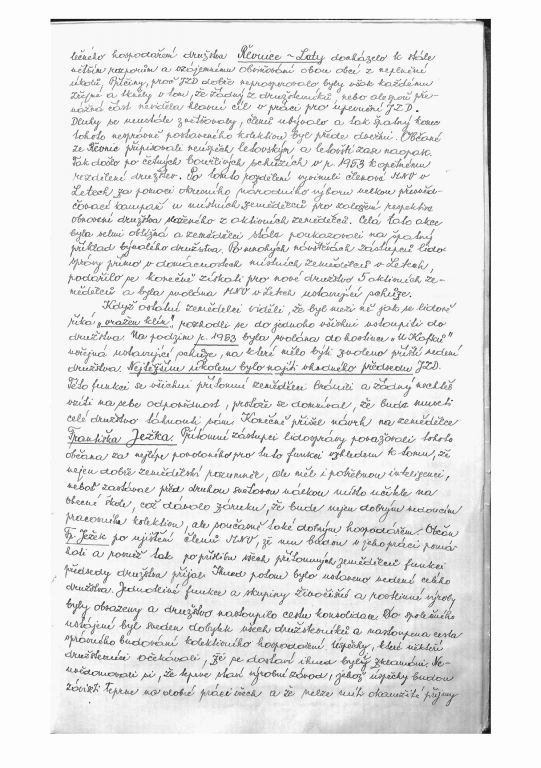 lečného hospodaření družstva Řevnice - Lety docházelo k stále
větším rozporům a vzájemnému obviňování obou obcí z neplnění
úkolů. Příčiny, proč JZD dobře neprosperovalo byly však každému
zřejmé a tkvěly v tom, že žádný z družstevníků, nebo alespoň pře-
vážná část neviděla hlavní cíl v práci pro upevnění JZD.
Dluhy se neustále zvětšovaly, členů ubývalo a tak špatný konec
tohoto nesprávně postaveného kolektivu byl přede dveřmi. Občané
ze Řevnic připisovali neúspěch letovským a letovští zase naopak.
Tak došlo po četných bouřlivých schůzích v r. 1953 k opětnému
rozdělení družstev. Po tomto rozdělení vyvinuli členové MNV v
Letech za pomoci okresního národního výboru velkou přesvěd-
čovací kampaň u místních zemědělců pro založení respektive
obnovení družstva složeného z aktivních zemědělců. Celá tato akce
byla velmi obtížná a zemědělci stále poukazovali na špatný
příklad bývalého družstva. Po mnohých návštěvách zástupců lido-
správy přímo v domácnostech místních zemědělců v Letech,
podařilo se konečně získati pro nové družstvo 5 aktivních ze-
mědělců a byla svolána MNV v Letech ustavující schůze.
Když ostatní zemědělci viděli, že byl mezi ně jak se lidově
říká "vražen klín", rozhodli se do jednoho všichni vstoupiti do
družstva. Na podzim r. 1953 byla svolána do hostince "U Kafků"
veřejná ustavující schůze, na které mělo býti zvoleno příští vedení
družstva. Nejtěžším úkolem bylo najíti vhodného předsedu JZD.
Této funkci se všichni přítomní zemědělci bránili a žádný nechtěl
vzíti na sebe odpovědnost, protože se domníval, že bude museti
celé družstvo táhnouti sám. Konečně přišel návrh na zemědělce
Františka Ježka. Přítomní zástupci lidosprávy považovali tohoto
občana za nejlépe povolaného pro tuto funkci vzhledem k tomu, že
nejen dobře zemědělství rozuměl, ale měl i potřebnou inteligenci,
neboť zastával před druhou světovou válkou místo učitele na
obecné škole, což dávalo záruku, že bude nejen dobrým vedoucím
pracovního kolektivu, ale současně také dobrým hospodářem. Občan
Fr. Ježek po ujištění členů MNV, že mu budou v jeho práci pomá-
hati a rovněž tak po příslibu všech přítomných zemědělců funkci
předsedy družstva přijal. Ihned potom bylo ustaveno vedení celého
družstva. Jednotlivé funkce a skupiny živočišné a rostlinné výroby
byly obsazeny a družstvo nastoupilo cestu konsolidace. Do společného
ustájení byl sveden dobytek všech družstevníků a nastoupena cesta
správného budování kolektivního hospodaření. Úspěchy, které někteří
družstevníci očekávali, že se dostaví ihned byly zklamáni. Ne-
uvědomovali si, že teprve staví výrobní závod, jehož úspěchy budou
záviseti teprve na dobré práci všech a že nelze míti okamžité příjmy